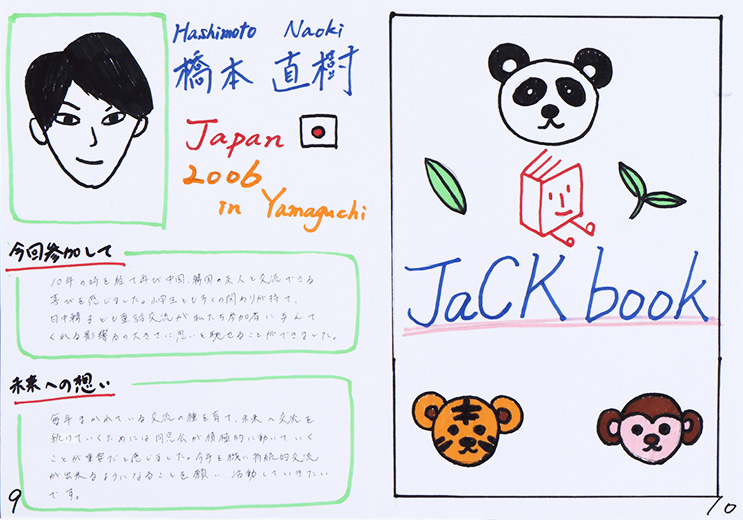 Hashimoto Naoki
橋本 直樹
Japan
2006
in Yamaguchi
今回参加して
10年の時を経て再び中国、韓国の友人と交流できる
喜びを感じました。小学生とも多くの関わりが持て、
日中韓子ども童話交流が私たち参加者に与えて
くれる影響力の大きさに思いを馳せることができました。
未来への想い
毎年まかれている交流の種を育て、未来へ交流を
続けていくためには同窓会が積極的に動いていく
ことが重要だと感じました。今年を機に持続的交流
が出来るようになることを願い、活動していきたい
です。
9
JaCK book
10